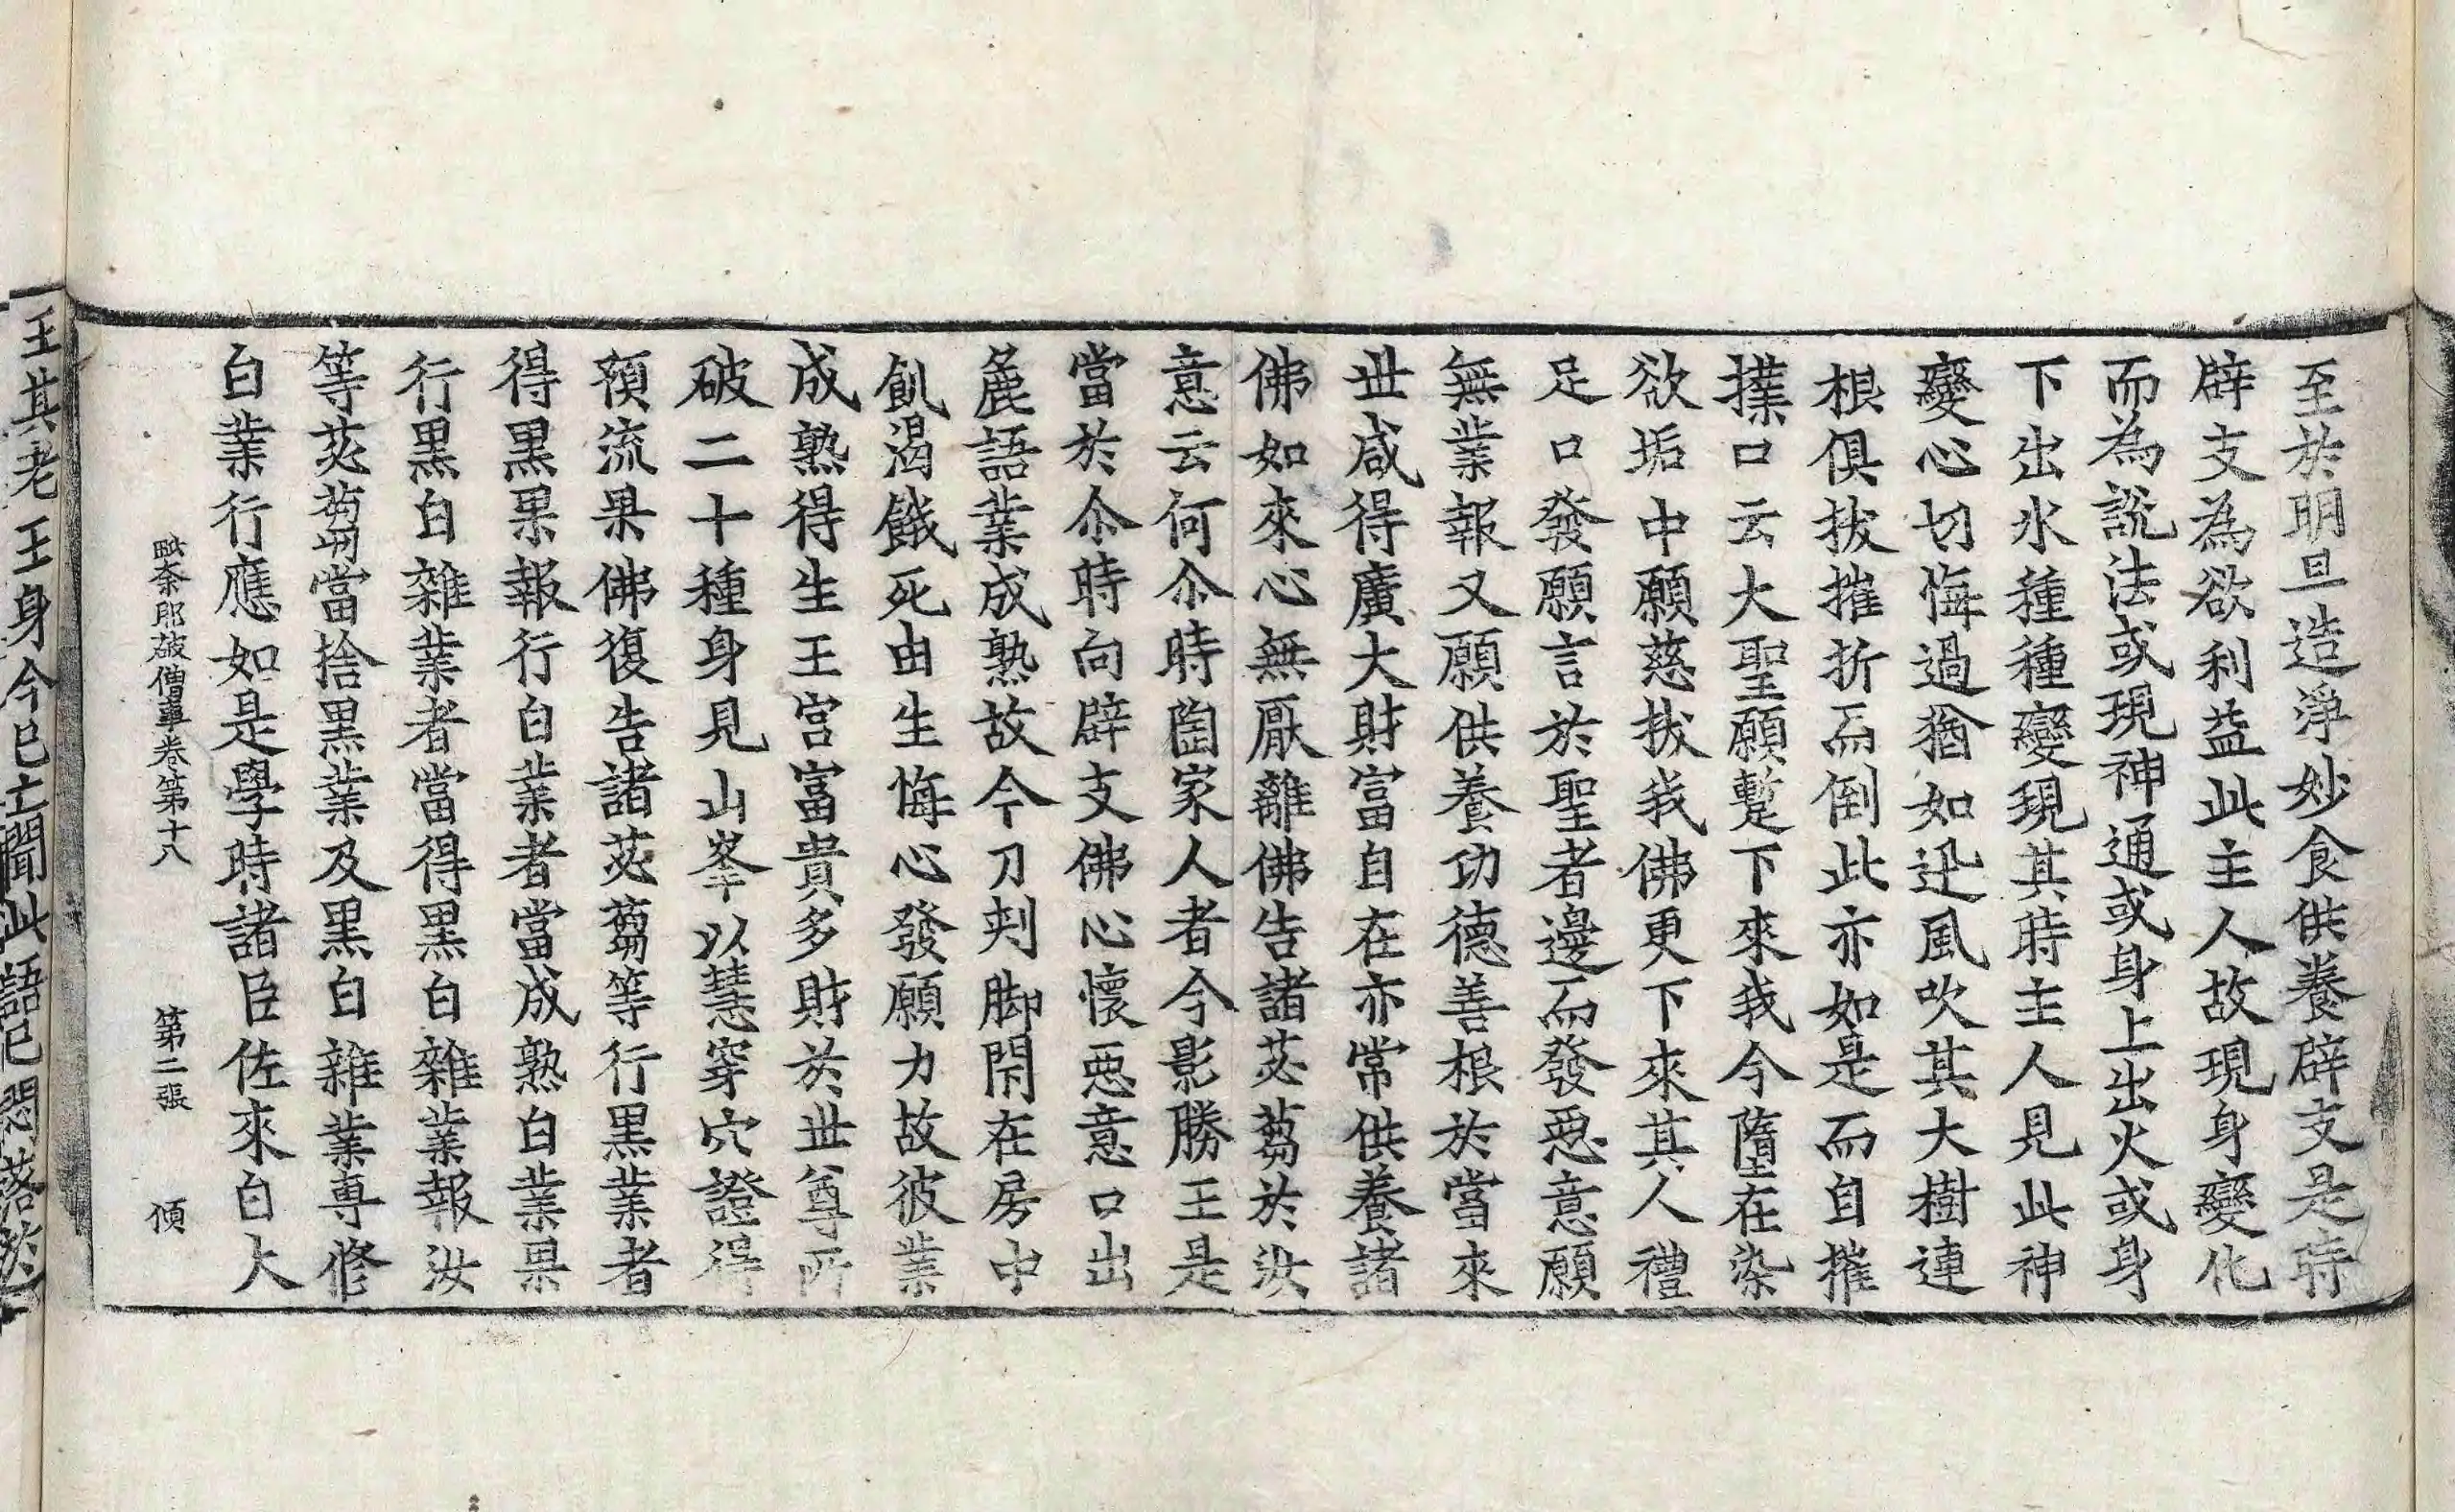 至於明旦造淨妙食供養辟支是時
辟支為欲利益此主人故現身變化
而為說法或現神通或身上出火或身
下出水種種變現其時主人見此神
變心切悔過猶如迅風吹其大樹連
根俱拔摧折而倒此亦如是而自摧
撲口云大聖願蹔下來我今墮在染
欲垢中願慈拔我佛更下來其人禮
足口發願言於聖者邊而發惡意願
無業報又願供養功德善根於當來
世咸得廣大財富自在亦常供養諸
佛如來心無厭離佛告諸苾蒭於汝
意云何尒時陶家人者今影勝王是
當於尒時向辟支佛心懷惡意口出
麁語業成熟故今刀刾脚閇在房中
飢渴餓死由生悔心發願力故彼業
成熟得生王宮富貴多財於世尊所
破二十種身見山峯以慧穿穴證得
預流果佛復告諸苾蒭等行黑業者
得黑果報行白業者當成熟白業果
行黑白雜業者當得黑白雜業報汝
等苾蒭當捨黑業及黑白雜業専修
白業行應如是學時諸臣佐來白大
毗奈耶破僧事卷第十八 第二張 傾
王其老王身今已亡聞此語已悶落